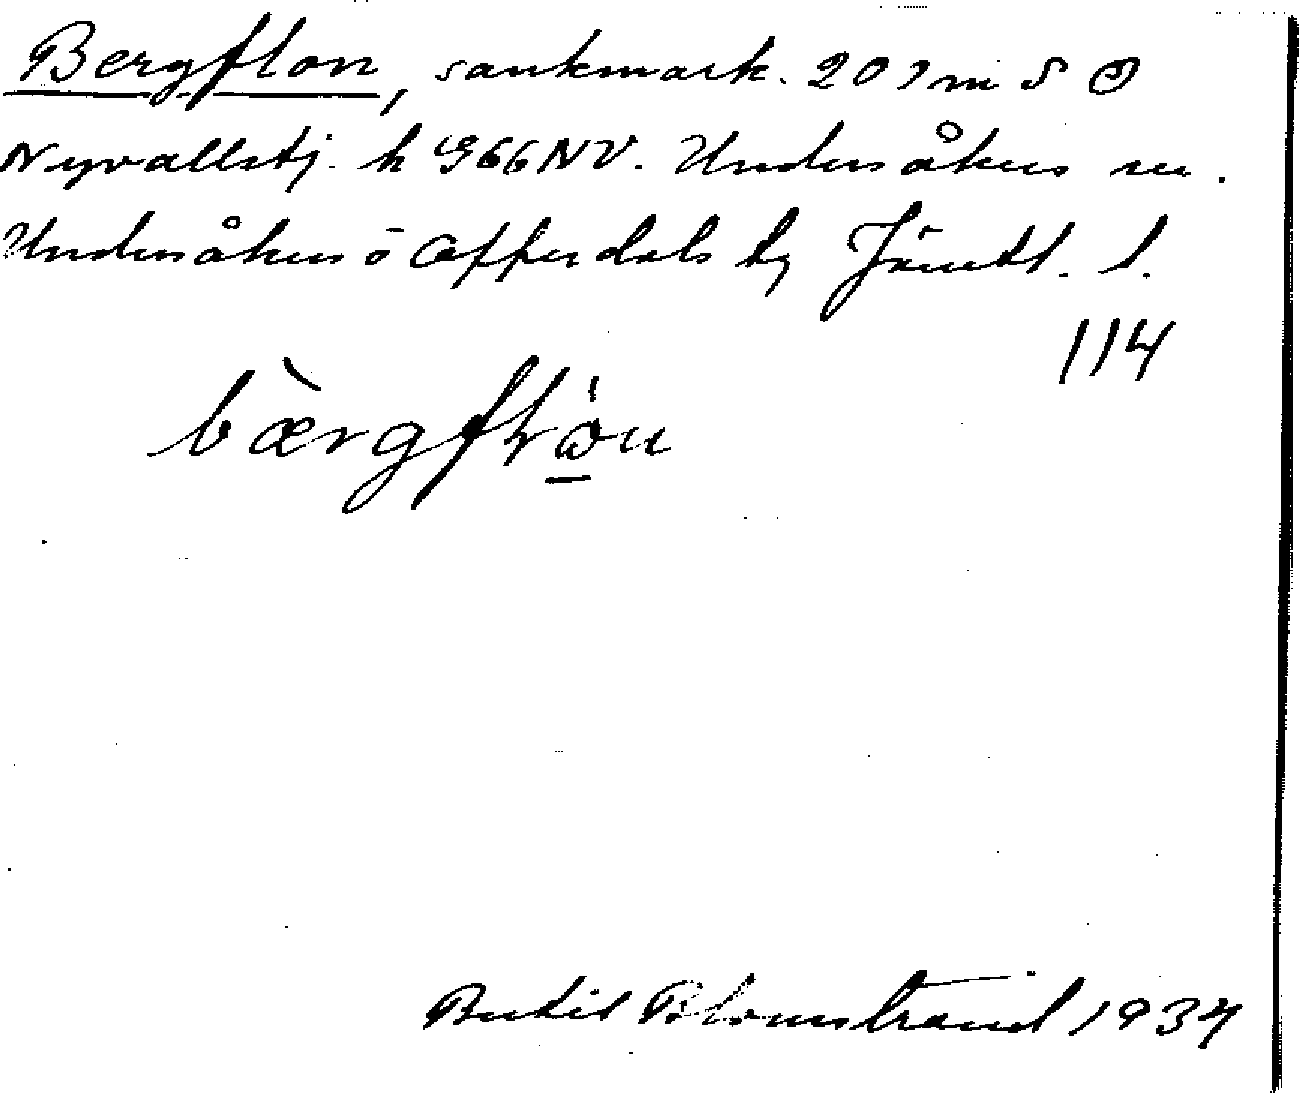 Bergflon, sankmark. 207 m S O
Nyvallstj. h 966 NV. Undersåkers sn.
Undersåkers o Offerdals tg Jämtl. l.
114
bærgflòn
Bertil Blomstrand 1934